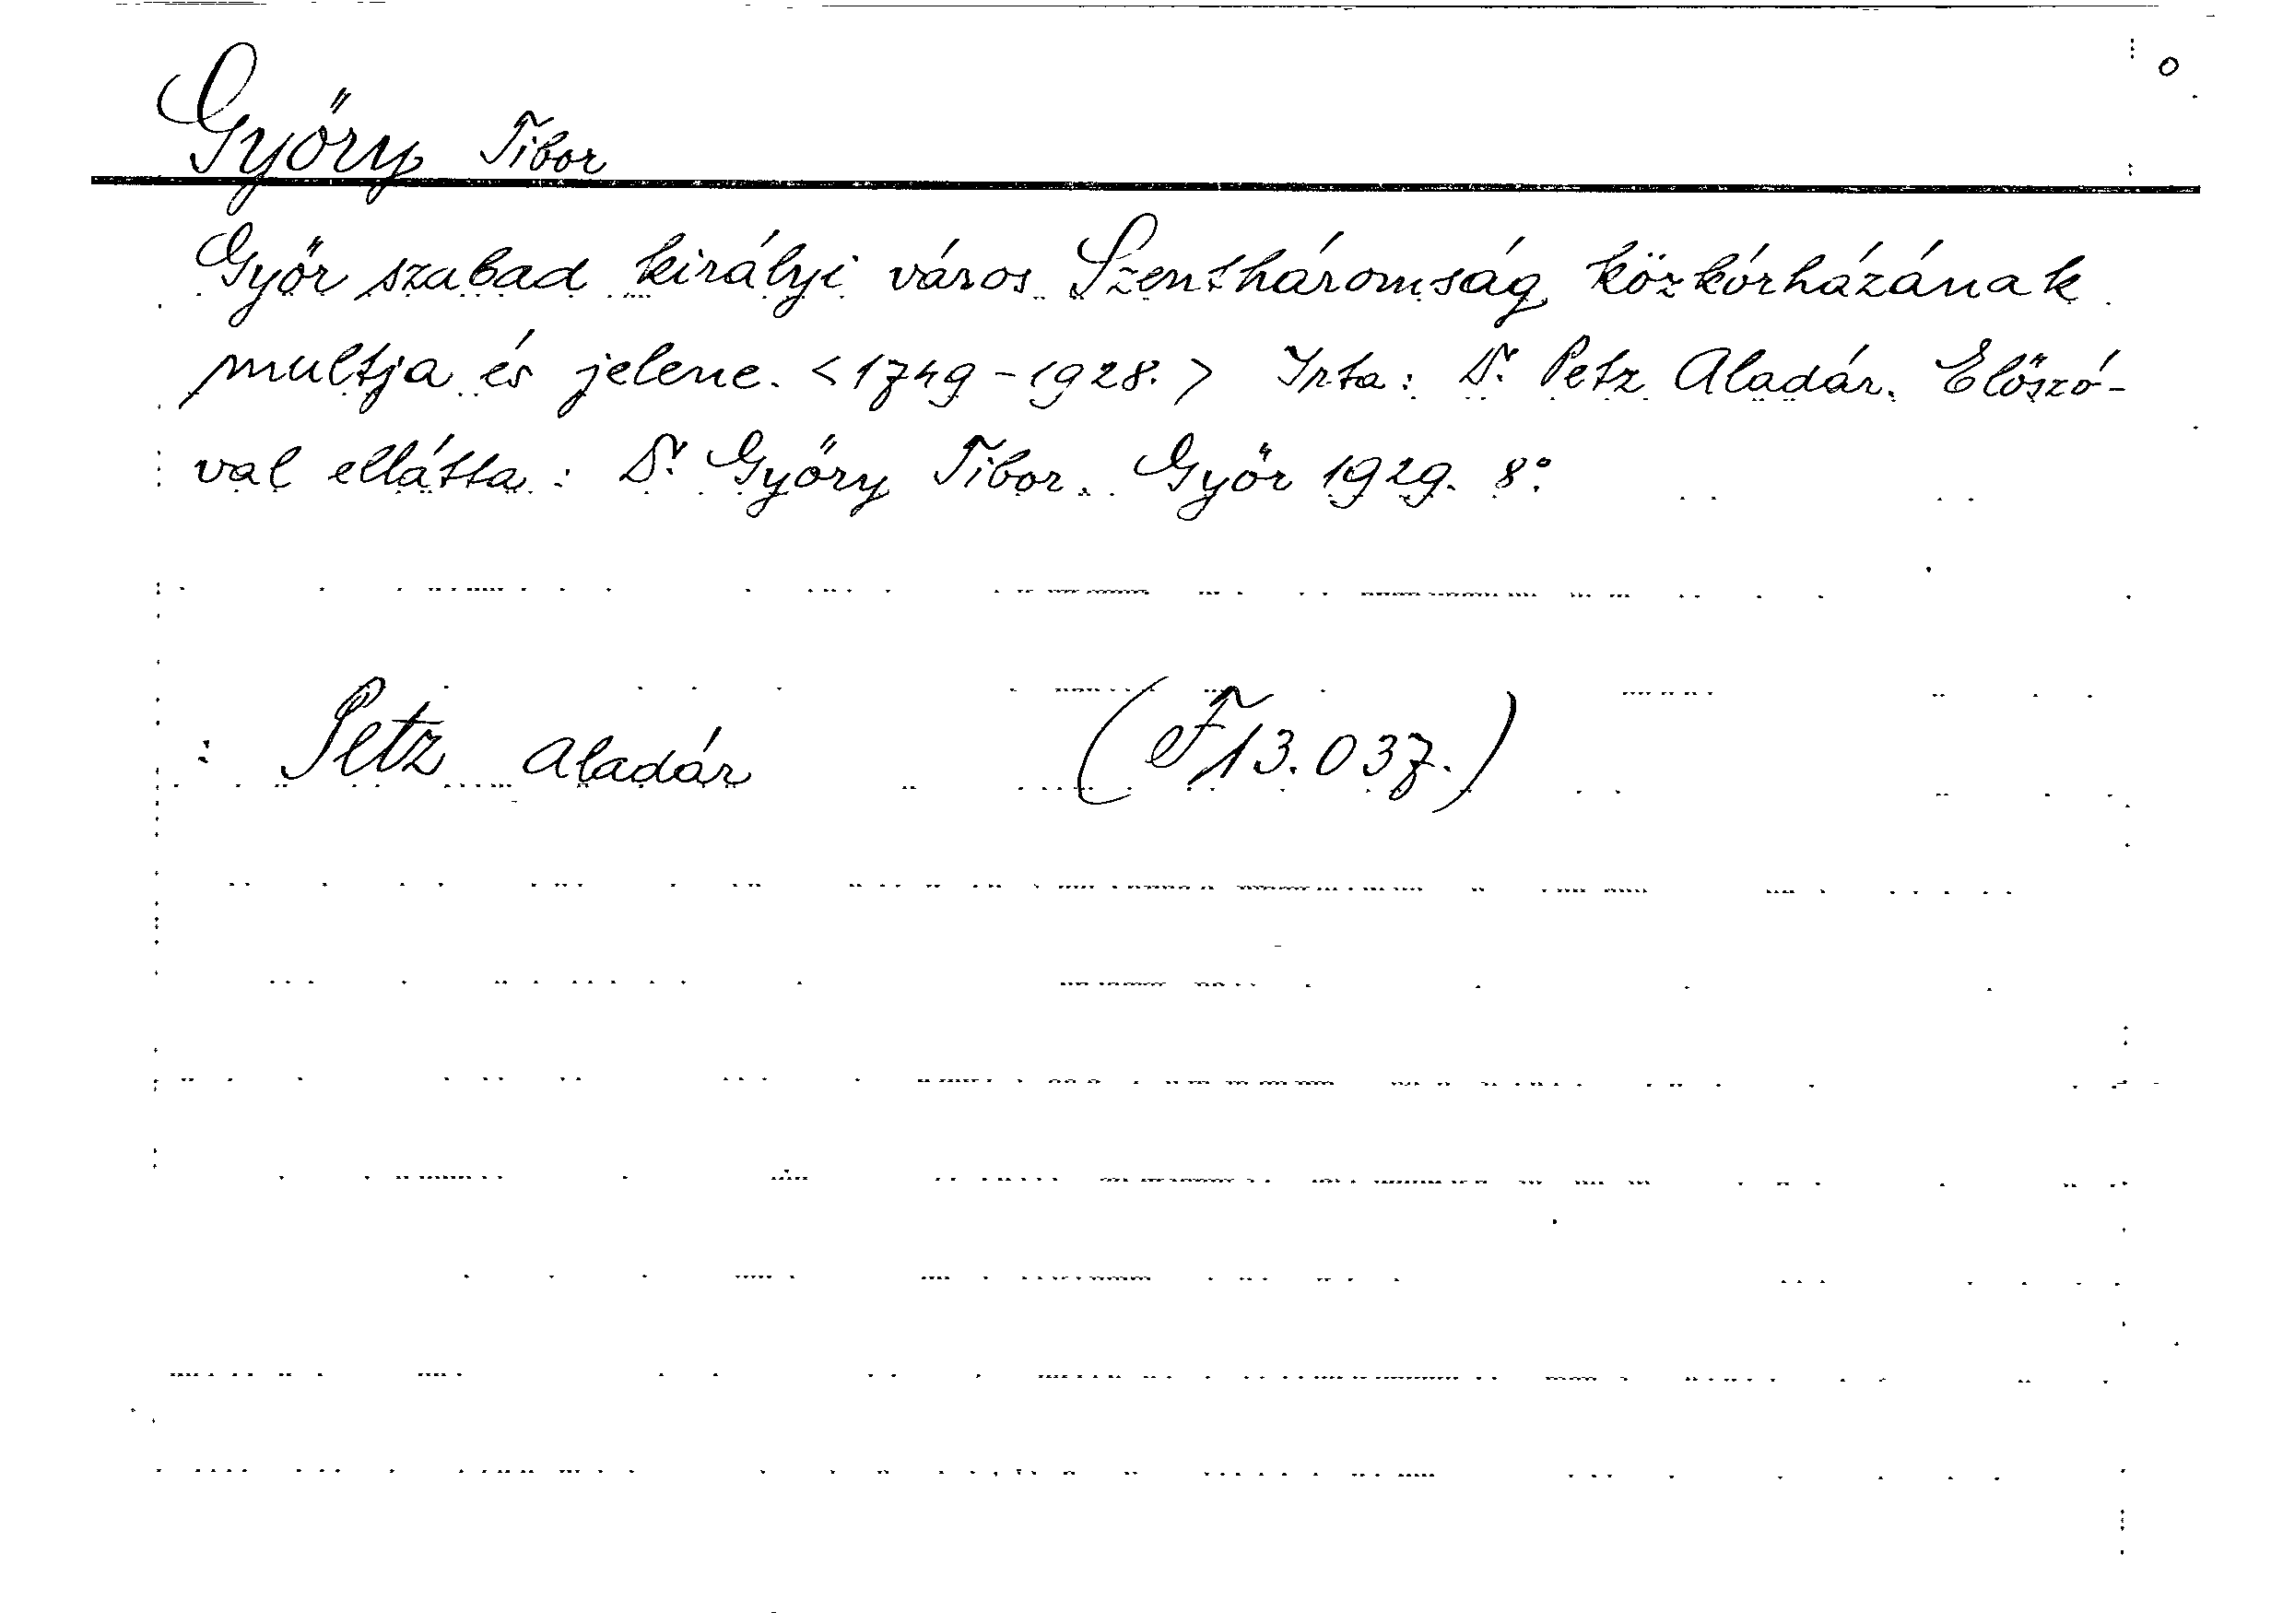 Győry Tibor
Győr szabad királyi város Szentháromság közkórházának
multja és jelene. <1749-1928.> Irta: Dr. Petz Aladár. Előszó-
val ellátta: Dr. Győry Tibor. Győr 1929. 8°
: Petz Aladár (F13.037.)